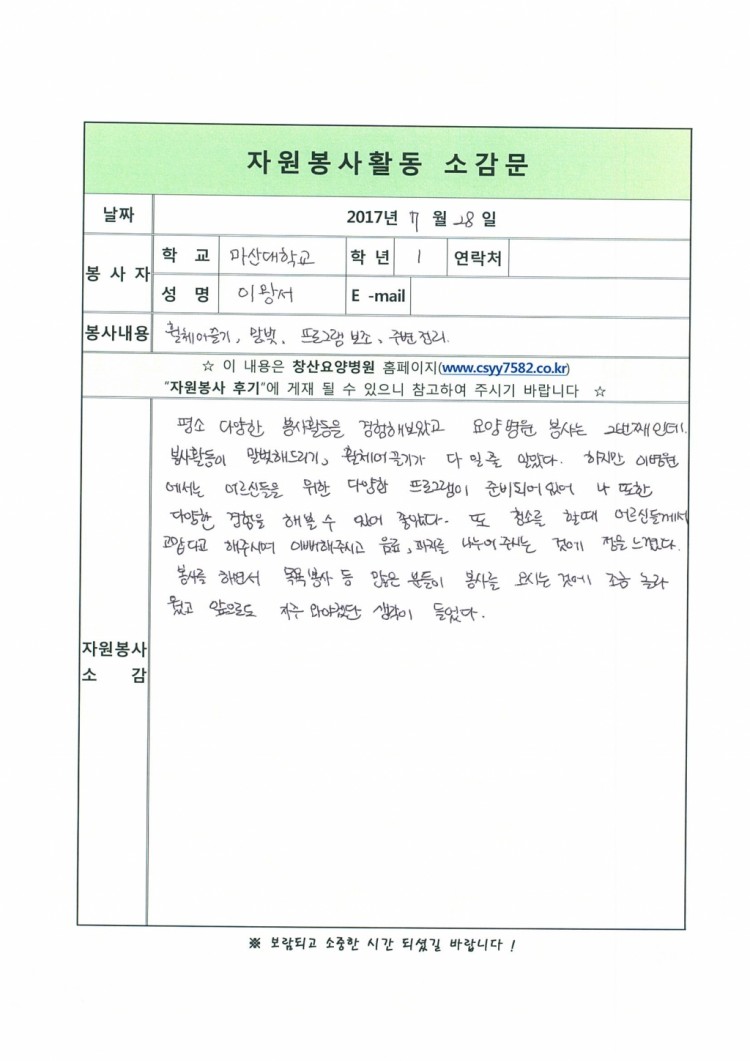 자원봉사활동 소감문
날짜 2017년 7 월 28 일
봉 사 자
학 교 마산대학교 학 년 1 연락처
성 명 이왕서 E -mail
봉사내용 휠체어끌기, 말벗, 프로그램 보조, 주변정리.
☆ 이 내용은 창산요양병원 홈페이지(www.csyy7582.co.kr)
"자원봉사 후기"에 게재 될 수 있으니 참고하여 주시기 바랍니다 ☆
자원봉사
소 감
평소 다양한 봉사활동을 경험해보았고 요양병원 봉사는 2번째인데.
봉사활동이 말벗해드리기, 휠체어끌기가 다 일줄 알았다. 하지만 이병원
에서는 어르신들을 위한 다양한 프로그램이 준비되어있어 나 또한
다양한 경험을 해볼 수 있어 좋았다. 또 청소를 할때 어르신들께서
고맙다고 해주시며 이뻐해주시고 음료, 과자를 나누어주시는 것에 정을 느꼈다.
봉사를 하면서 목욕봉사 등 많은 분들이 봉사를 오시는 것에 조금 놀라
웠고 앞으로도 자주 와야겠단 생각이 들었다.
※ 보람되고 소중한 시간 되셨길 바랍니다 !